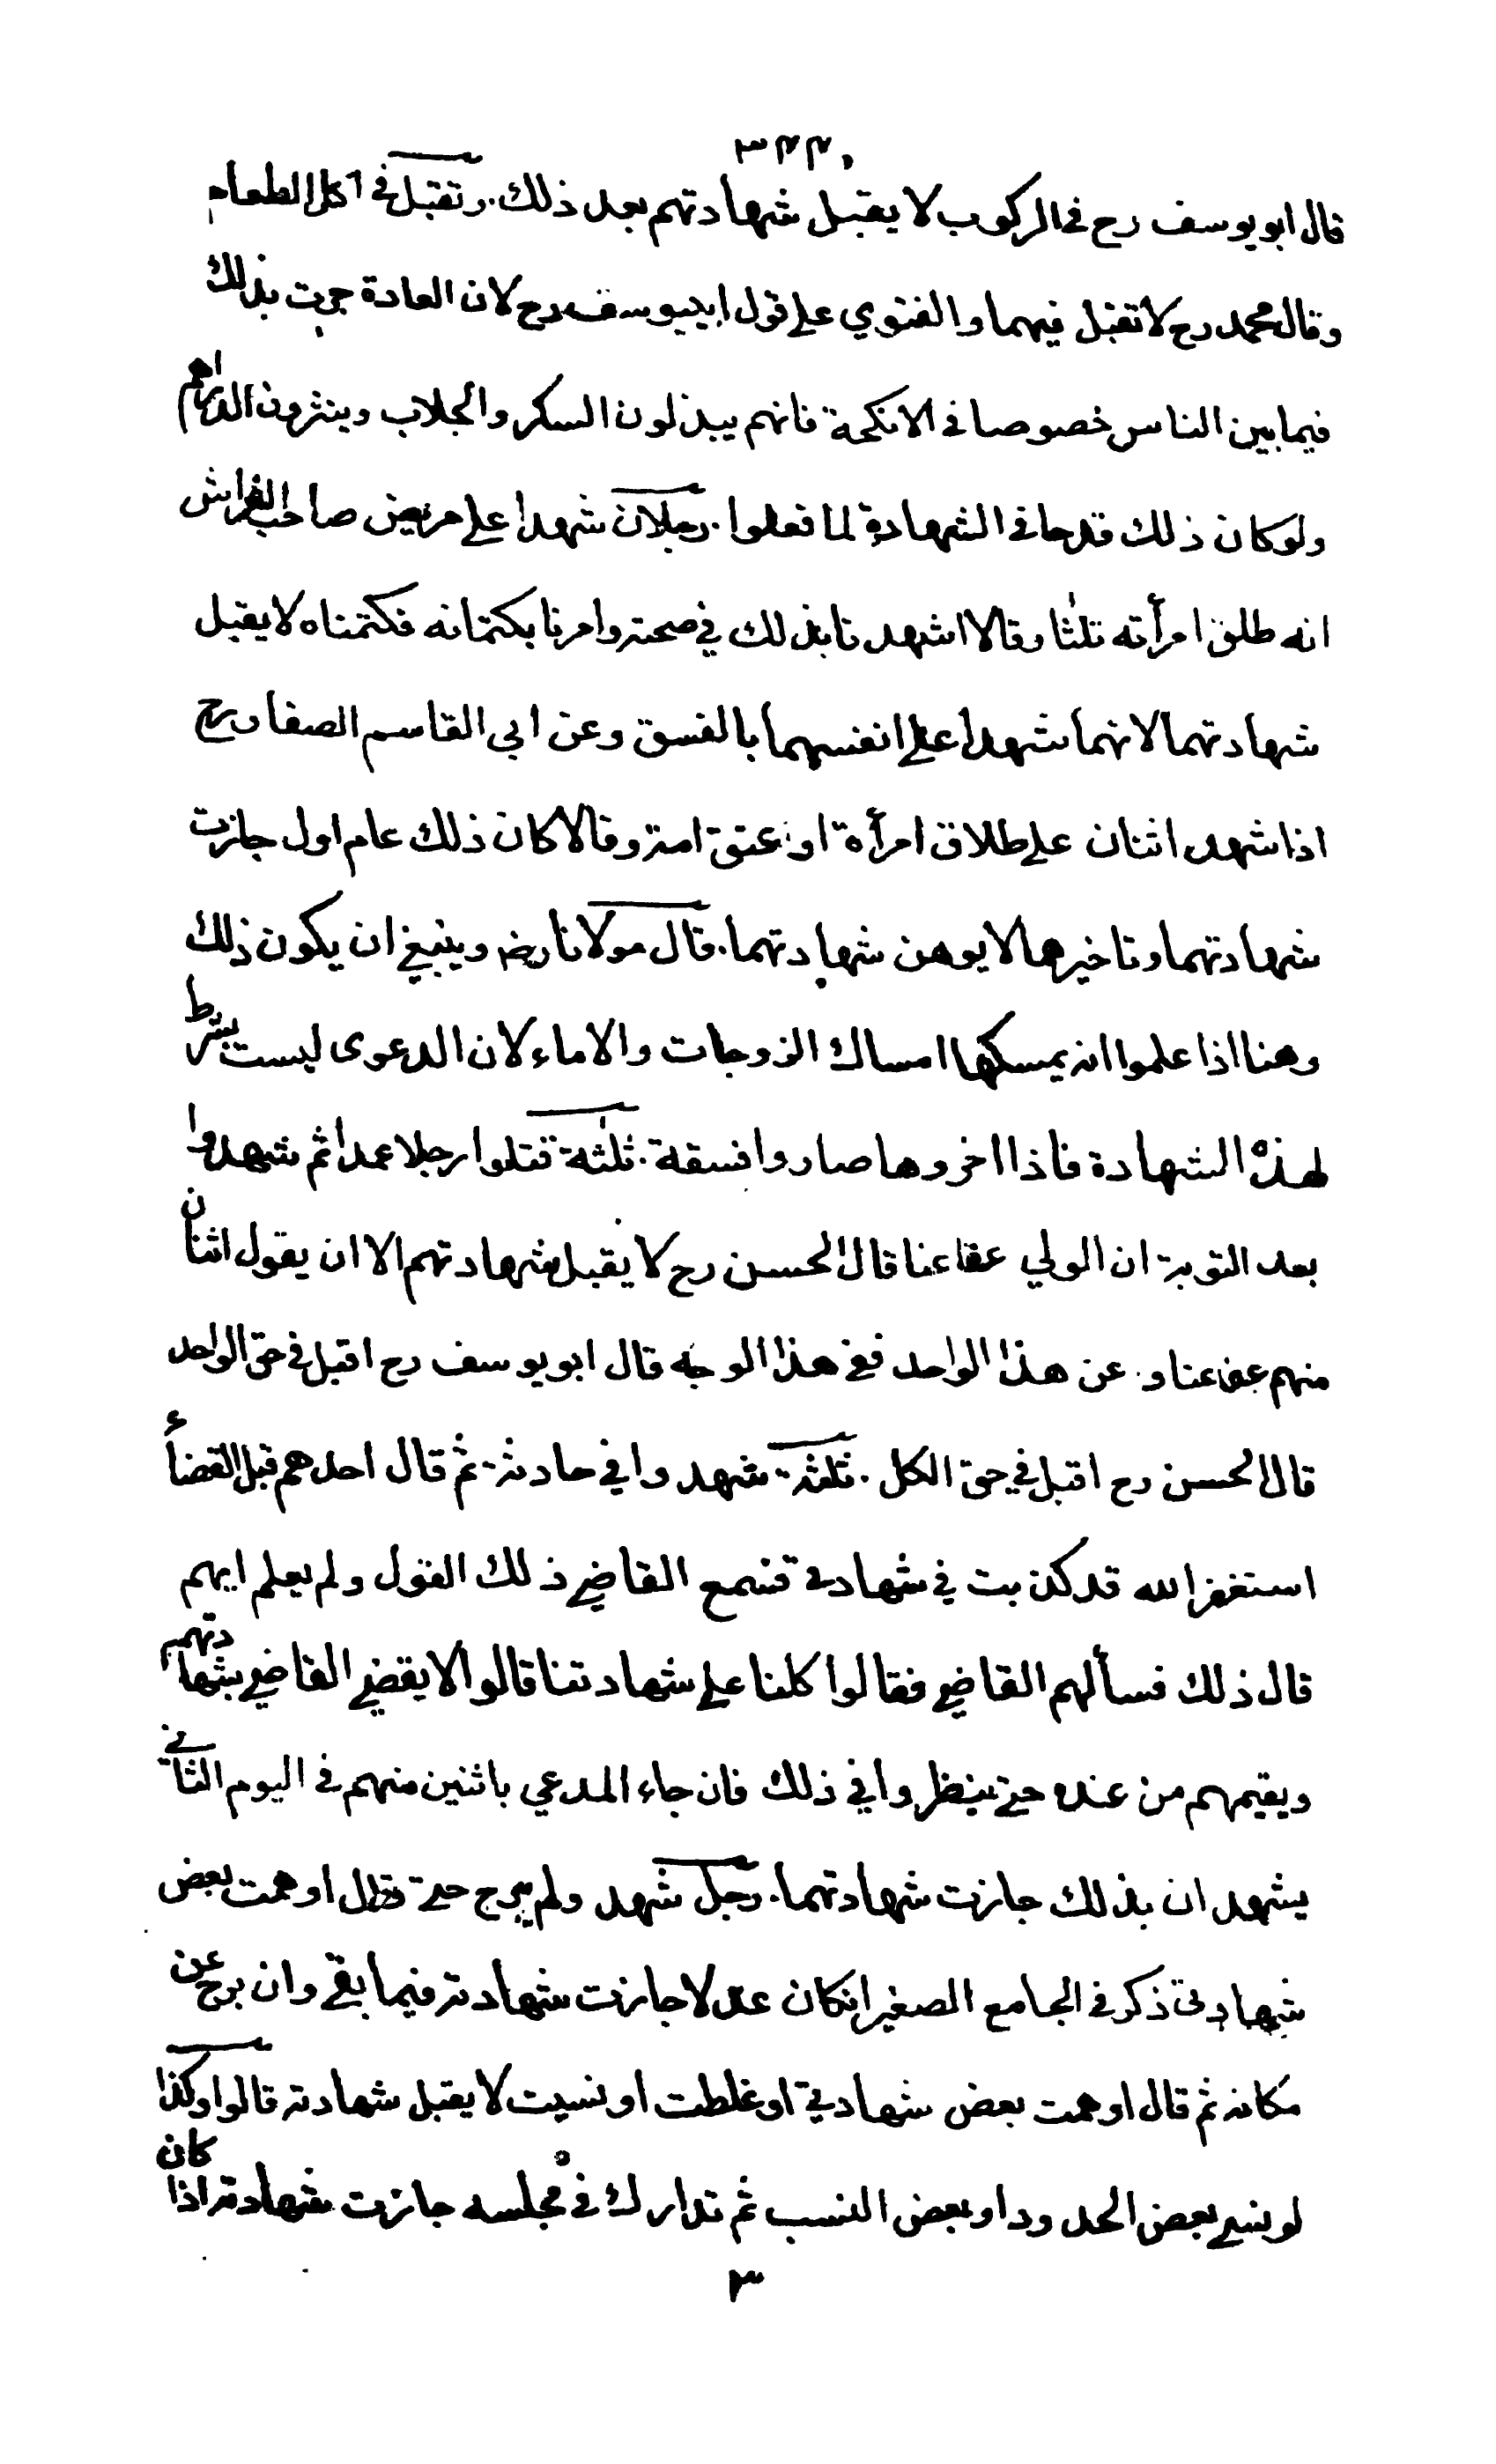 ٣٢٢
قال ابو يوسف رح في الركوب لا يقبل شهادتهم بعد ذلك. وتقبل في اكل الطعام
وقال محمد رح لا تقبل فيهما والفتوي على قول ابي يوسف رح لان العادة جرت بذلك
فيما بين الناس خصوصا في الانكحة فانهم يبذلون السكر والجلاب وينثرون الدراهم
ولو كان ذلك قدحا في الشهادة لما فعلوا. رجلان شهدا على مريض صاحب الفراش
انه طلق امرأته ثلثا وقالا اشهدنا بذلك في صحته وامرنا بكتمانه فكتمناه لا يقبل
شهادتهما لانهما شهدا على انفسهما بالفسق وعن ابي القاسم الصفار رح
اذا شهد اثنان على طلاق امرأة او عتق امة وقالا كان ذلك عام اول جازت
شهادتهما وتاخيرها لا يوهن شهادتهما. قال مولانا رض وينبغي ان يكون ذلك
وهنا اذا علموا انه يمسكها امساك الزوجات والاماء لان الدعوى ليست بشرط
لهذه الشهادة فاذا اخروها صاروا فسقة. ثلثة قتلوا رجلا عمدا ثم شهدوا
بعد التوبة ان الولي عفا عنا قال الحسن رح لا يقبل شهادتهم الا ان يقول اثنان
منهم عفا عنا و عن هذا الواحد ففي هذا الوجه قال ابو يوسف رح اقبل في حق الواحد
قال الحسن رح اقبل في حق الكل. ثلثة شهدوا في حادثة ثم قال احدهم قبل القضاء
استغفر الله قد كذبت في شهادتي فسمع القاضي ذلك القول ولم يعلم ايهم
قال ذلك فسألهم القاضي فقالوا كلنا على شهادتنا قالوا لا يقضي القاضي بشهادتهم
ويقيمهم من عنده حتى ينظروا في ذلك فان جاء المدعي باثنين منهم في اليوم الثاني
يشهدان بذلك جازت شهادتهما. رجل شهد ولم يبرح حتى قال اوهمت بعض
شهادتي ذكر في الجامع الصغير ان كان عدلا جازت شهادته فيما بقي وان برح عن
مكانه ثم قال اوهمت بعض شهادتي او غلطت او نسيت لا يقبل شهادته قالوا وكذا
لو نسي بعض الحدود او بعض النسب ثم تدارك في مجلسه جازت شهادته اذا كان
٣